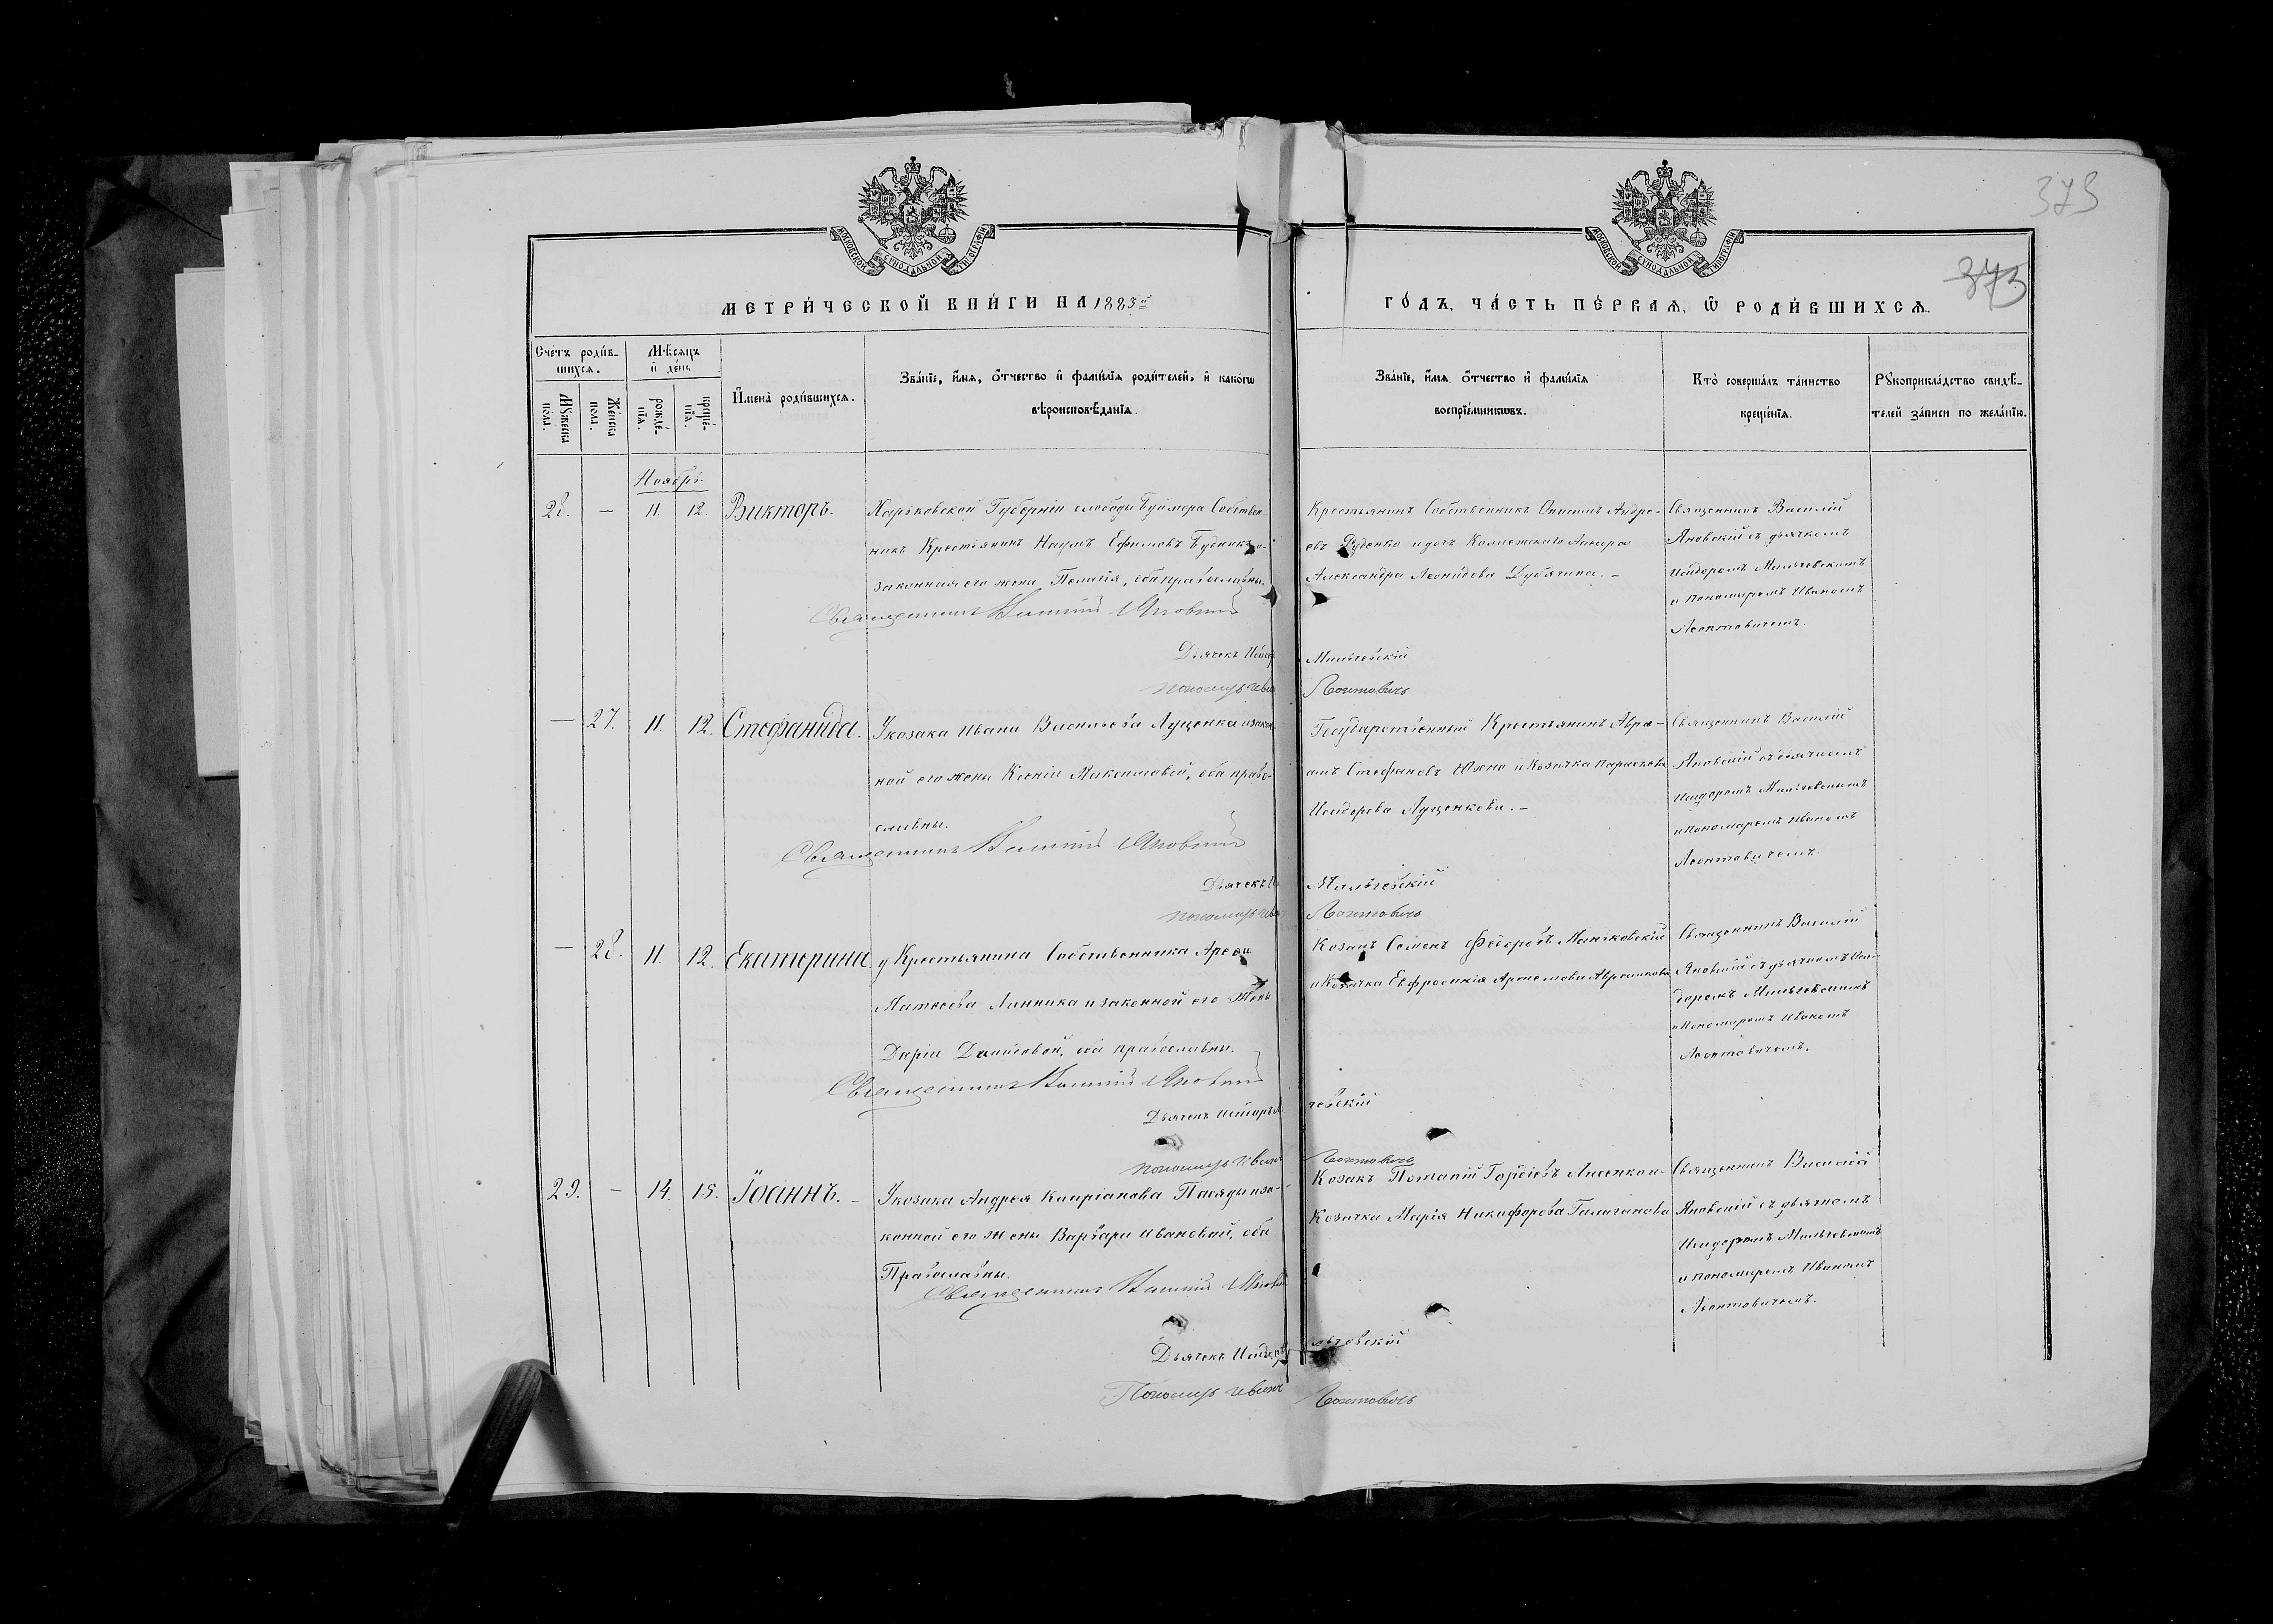 373
373
МОСКОВСКОЙ СУНОДАЛЬНОЙ ТИПОГРАФІИ
МОСКОВСКОЙ СУНОДАЛЬНОЙ ТИПОГРАФІИ
МЕТРИ́ЧЕСКОЙ КНИ́ГИ НА 1883й
ГО́ДЪ, ЧА́СТЬ ПЕ́РВАЯ, Ѽ РОДИ́ВШИХСЯ.
Сче́тъ роди́в-
шихся.
Мѣсяцъ
и де́нь
Му́жеска
пола.
Же́нска
пола.
рожде́-
нїя.
креще́-
нїя.
Имена̀ роди́вшихся.
Зва́нїе, и́мя, о́тчество и фами́лїя роди́телей, и како́гѡ
вѣроисповѣ́данїя.
Зва́нїе, и́мя о́тчество и фами́лїя
воспрїе́мникѡвъ.
Кто̀ соверша́лъ та́инство
креще́нїя.
Рꙋкоприкла́дство свидѣ́-
телей за́писи по жела́нїю.
Ноябрь.
28. — 11. 12. Викторъ.
Харьковской Губерніи слободы Буймера Собствен-
никъ Крестьянинъ Наумъ Ефимовъ и
законная его жена Пелагія, оба православны.
Священникъ Василій Яновскій
Дьячекъ Исидор
Пономарь Иван
Крестьянинъ Собственникъ Онисимъ Андре-
евъ Руденко и дочь
Александра Леонидова
Мильчевскій
Леонтовичъ
Священникъ Василій
Яновскій съ дьячкомъ
Исидоромъ Мильчевскимъ
и пономаремъ Иваномъ
Леонтовичемъ.
— 27. 11. 12. Стефанида.
У козака Ивана Васильева Луценка и закон-
ной его жены Ксеніи Максимовой, оба право-
славны.
Священникъ Василій Яновскій
Дьячекъ И
Пономарь Ива
Государственный Крестьянинъ Авра-
амъ Стефановъ и Козачка Параскева
Исидорова Луценкова. —
Мильчевскій
Леонтовичъ
Священникъ Василій
Яновскій съ дьячкомъ
Исидоромъ Мильчевскимъ
и Пономаремъ Иваномъ
Леонтовичемъ.
— 28. 11. 12. Екатерина.
у Крестьянина Собственника
Матвеева Линника и законной его Жены
Даріи оба православны.
Священникъ Василій Яновскій
Дьячекъ Исидоръ М
Пономарь Иван
Козакъ Семенъ Федоровъ Маньковскій
и Козачка Евфросинія Артемова
чевскій
Леонтовичъ
Священникъ Василій
Яновскій съ дьячкомъ Иси-
доромъ Мильчевскимъ
и Пономаремъ Иваномъ
Леонтовичемъ.
29. — 14. 15. Іоаннъ. —
У козака Андрея Кипріанова Пасяды и за-
конной его жены Варвары Ивановой, оба
Православны.
Священникъ Василій Яновскій
Дьячекъ Исидоръ
Пономарь Иванъ
Козакъ Потапій Гордіевъ Лисенко и
Козачка Марія Никифорова
льчевскій
Леонтовичъ
Священникъ Василій
Яновскій съ дьячкомъ
Исидоромъ Мильчевскимъ
и пономаремъ Иваномъ
Леонтовичемъ.